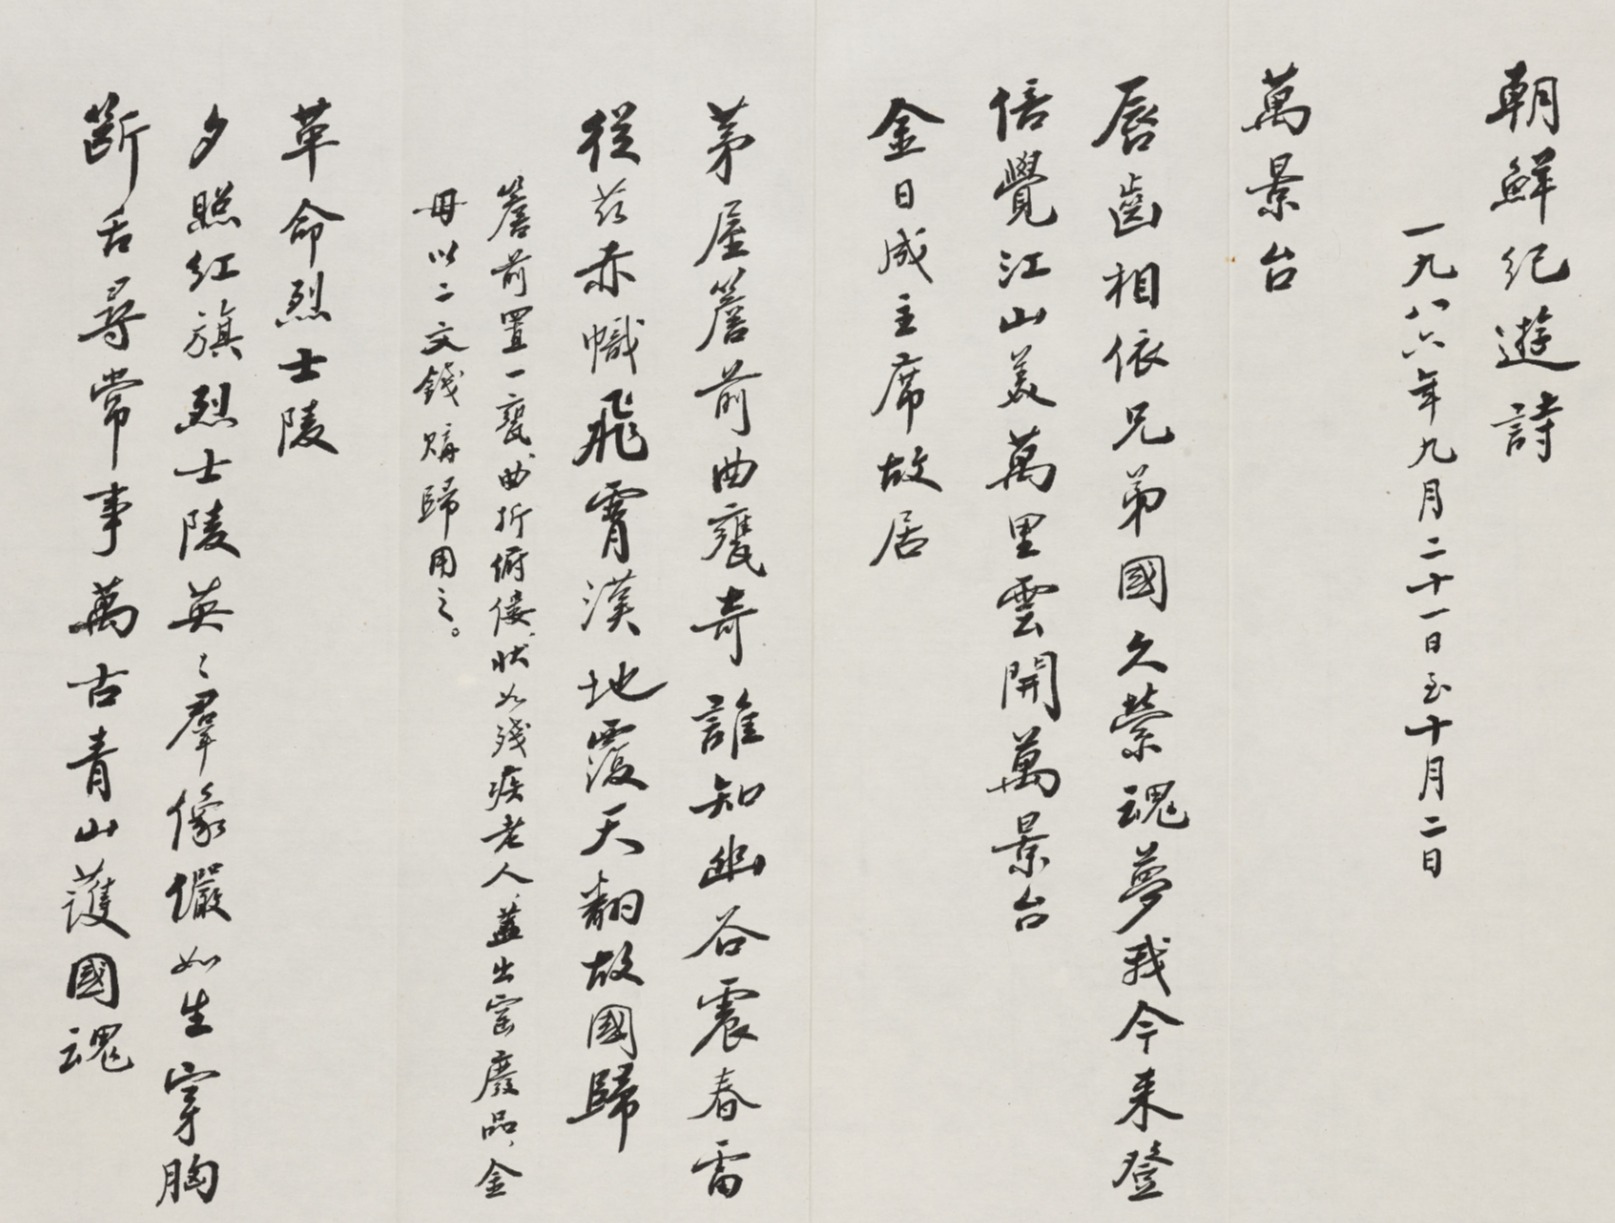 朝鮮紀遊詩
一九八六年九月二十一日至十月二日
萬景台
唇齒相依兄弟國久縈魂夢我今来登
倍覺江山美萬里雲開萬景台
金日成主席故居
茅屋簷前曲甕奇誰知幽谷震春雷
從茲赤幟飛霄漢地覆天翻故國歸
簷前置一甕、曲折俯僂、狀如殘疾老人、蓋出窑廢品、金
母以二文錢購歸用之。
革命烈士陵
夕照紅旗烈士陵英々羣像儼如生穿胸
斷舌尋常事萬古青山護國魂